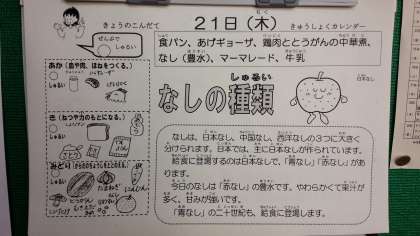 きょうのこんだて
21日(木)
きゅうしょくカレンダー
食パン、あげギョーザ、鶏肉ととうがんの中華煮、
なし(豊水)、マーマレード、牛乳
ぜんぶで
しゅるい
あか(血や肉、ほねをつくる。)
しゅるい
き(ねつや力のもとになる。)
しゅるい
みどり
しゅるい
たまねぎ
にんじん
なしの種類
日本なし
なしは、日本なし、中国なし、西洋なしの3つに大きく
分けられます。日本では、主に日本なしが作られています。
給食に登場するのは日本なしで、「青なし」「赤なし」があ
ります。
今日のなしは「赤なし」の豊水です。やわらかくて果汁が
多く、甘みが強いです。
「青なし」の二十世紀も、給食に登場します。